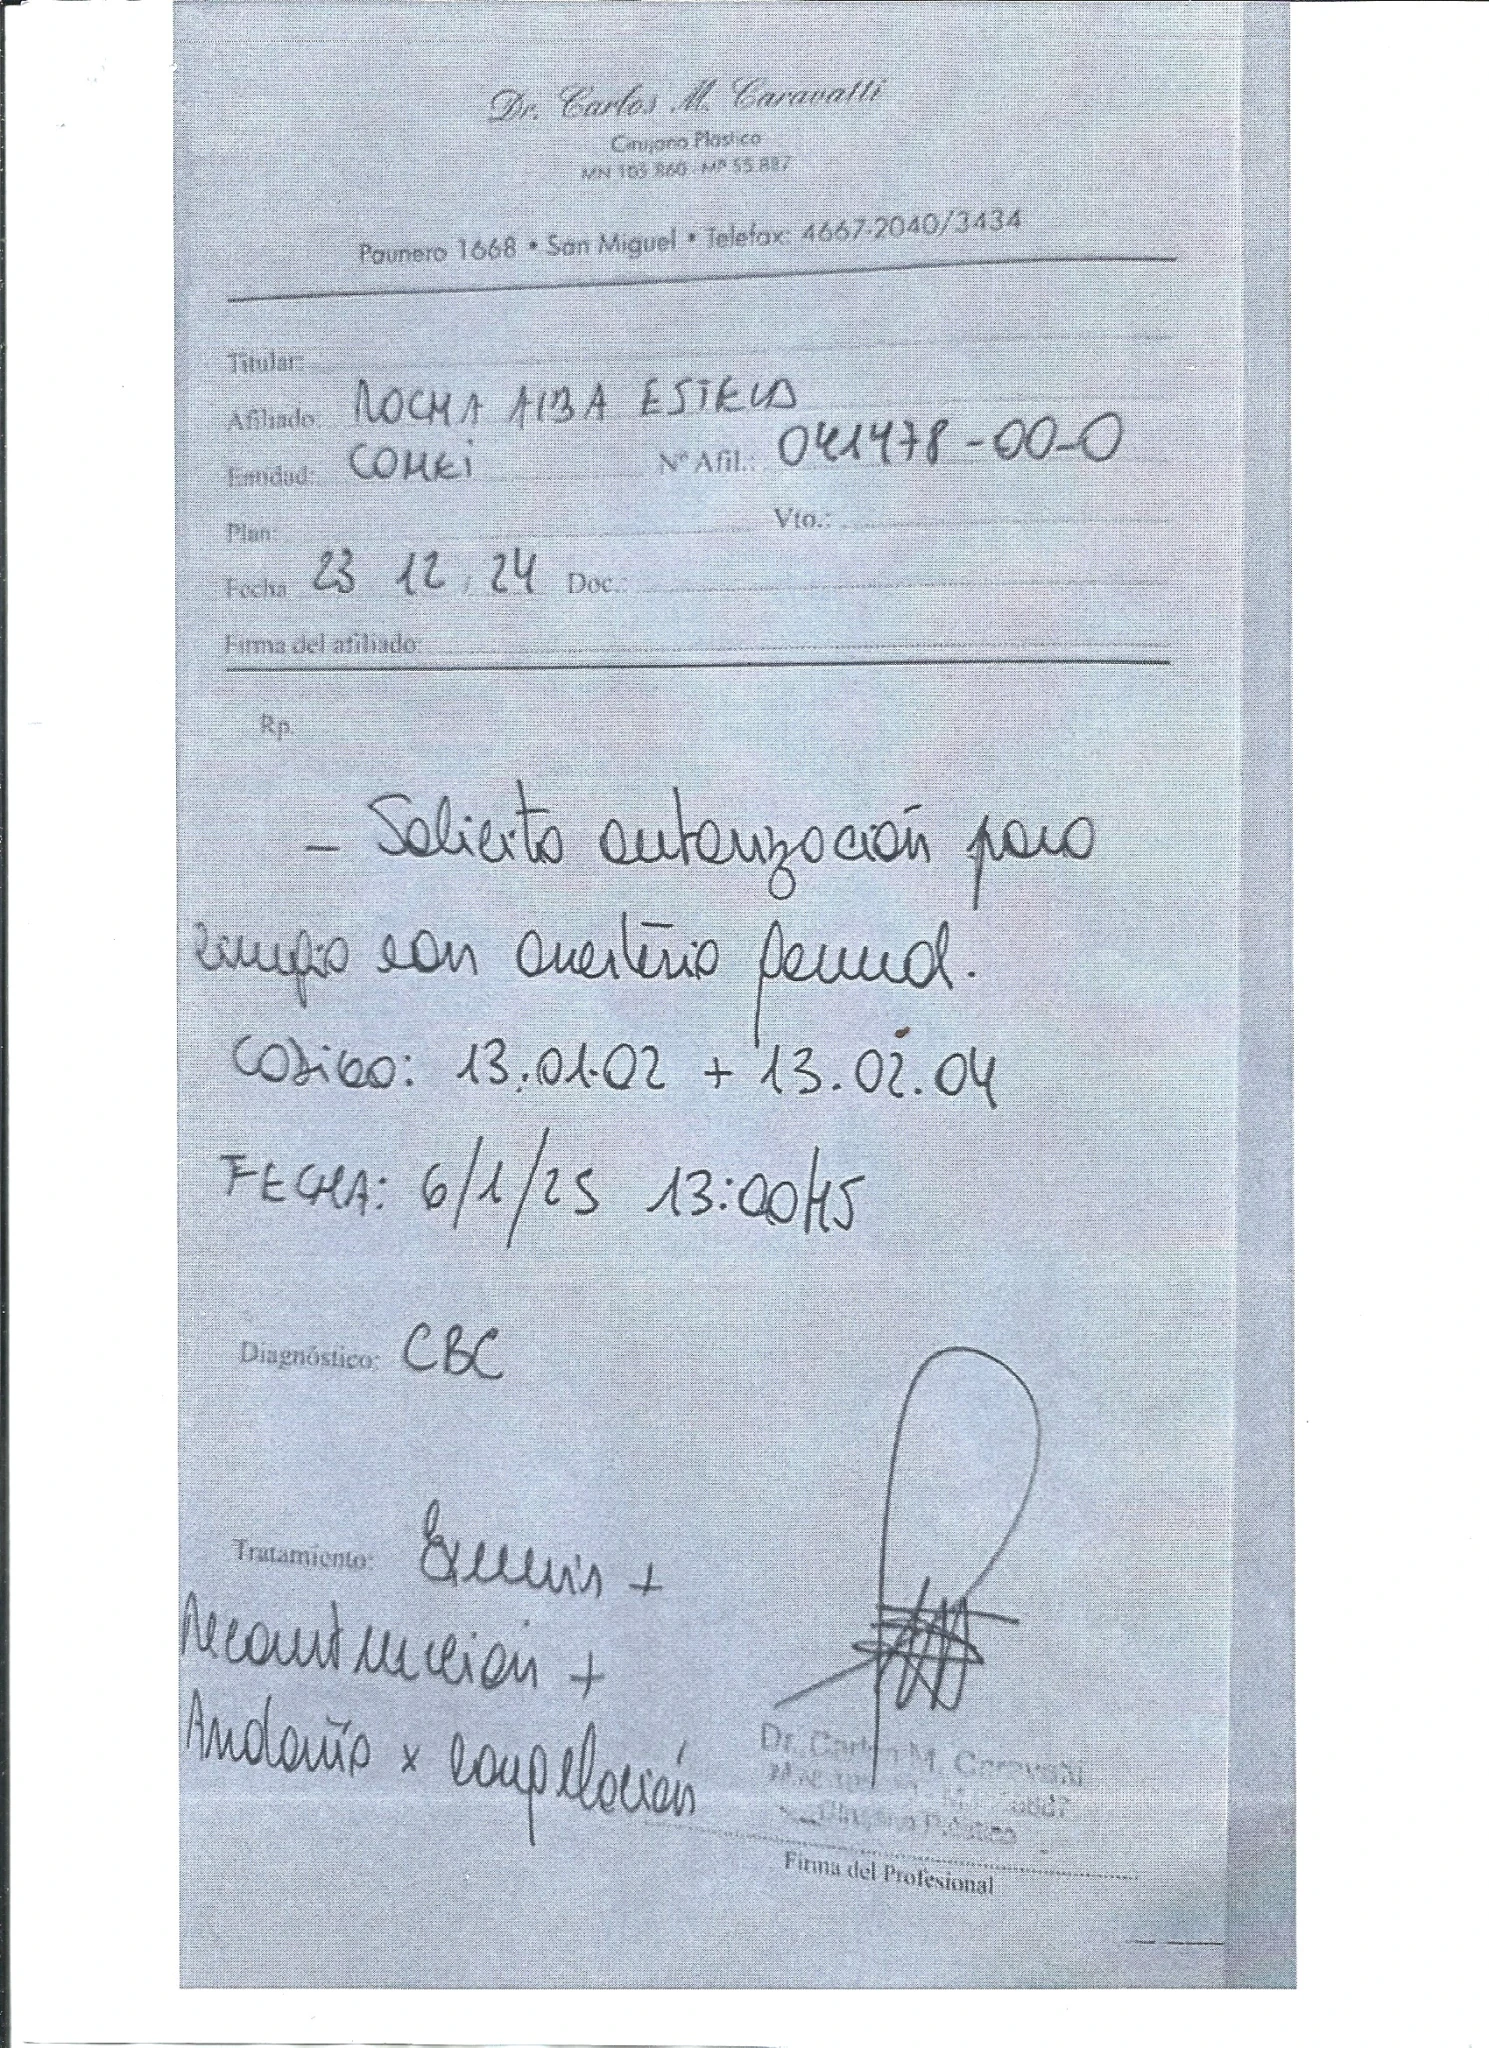 Dr. Carlos M. Caravatti
Cirujano Plastico
MN 105 860 - MP 55.887
Paunero 1668 • San Miguel • Telefax: 4667-2040/3434
Titular:
Afiliado: ROCHA ALBA ESTELA
Entidad: COMEI Nº Afil.: 041478-00-0
Plan: Vto.:
Fecha 23 12 / 24 Doc.:
Firma del afiliado:
Rp.
- Solicito autorización para
cirugía con anestesia
CODIGO: 13.01.02 + 13.02.04
FECHA: 6/1/25 13:00HS
Diagnóstico: CBC
Tratamiento: Exeresis +
Reconstrucción +
x congelación
Dr. Carlos M. Caravatti
Cirujano Plástico
Firma del Profesional